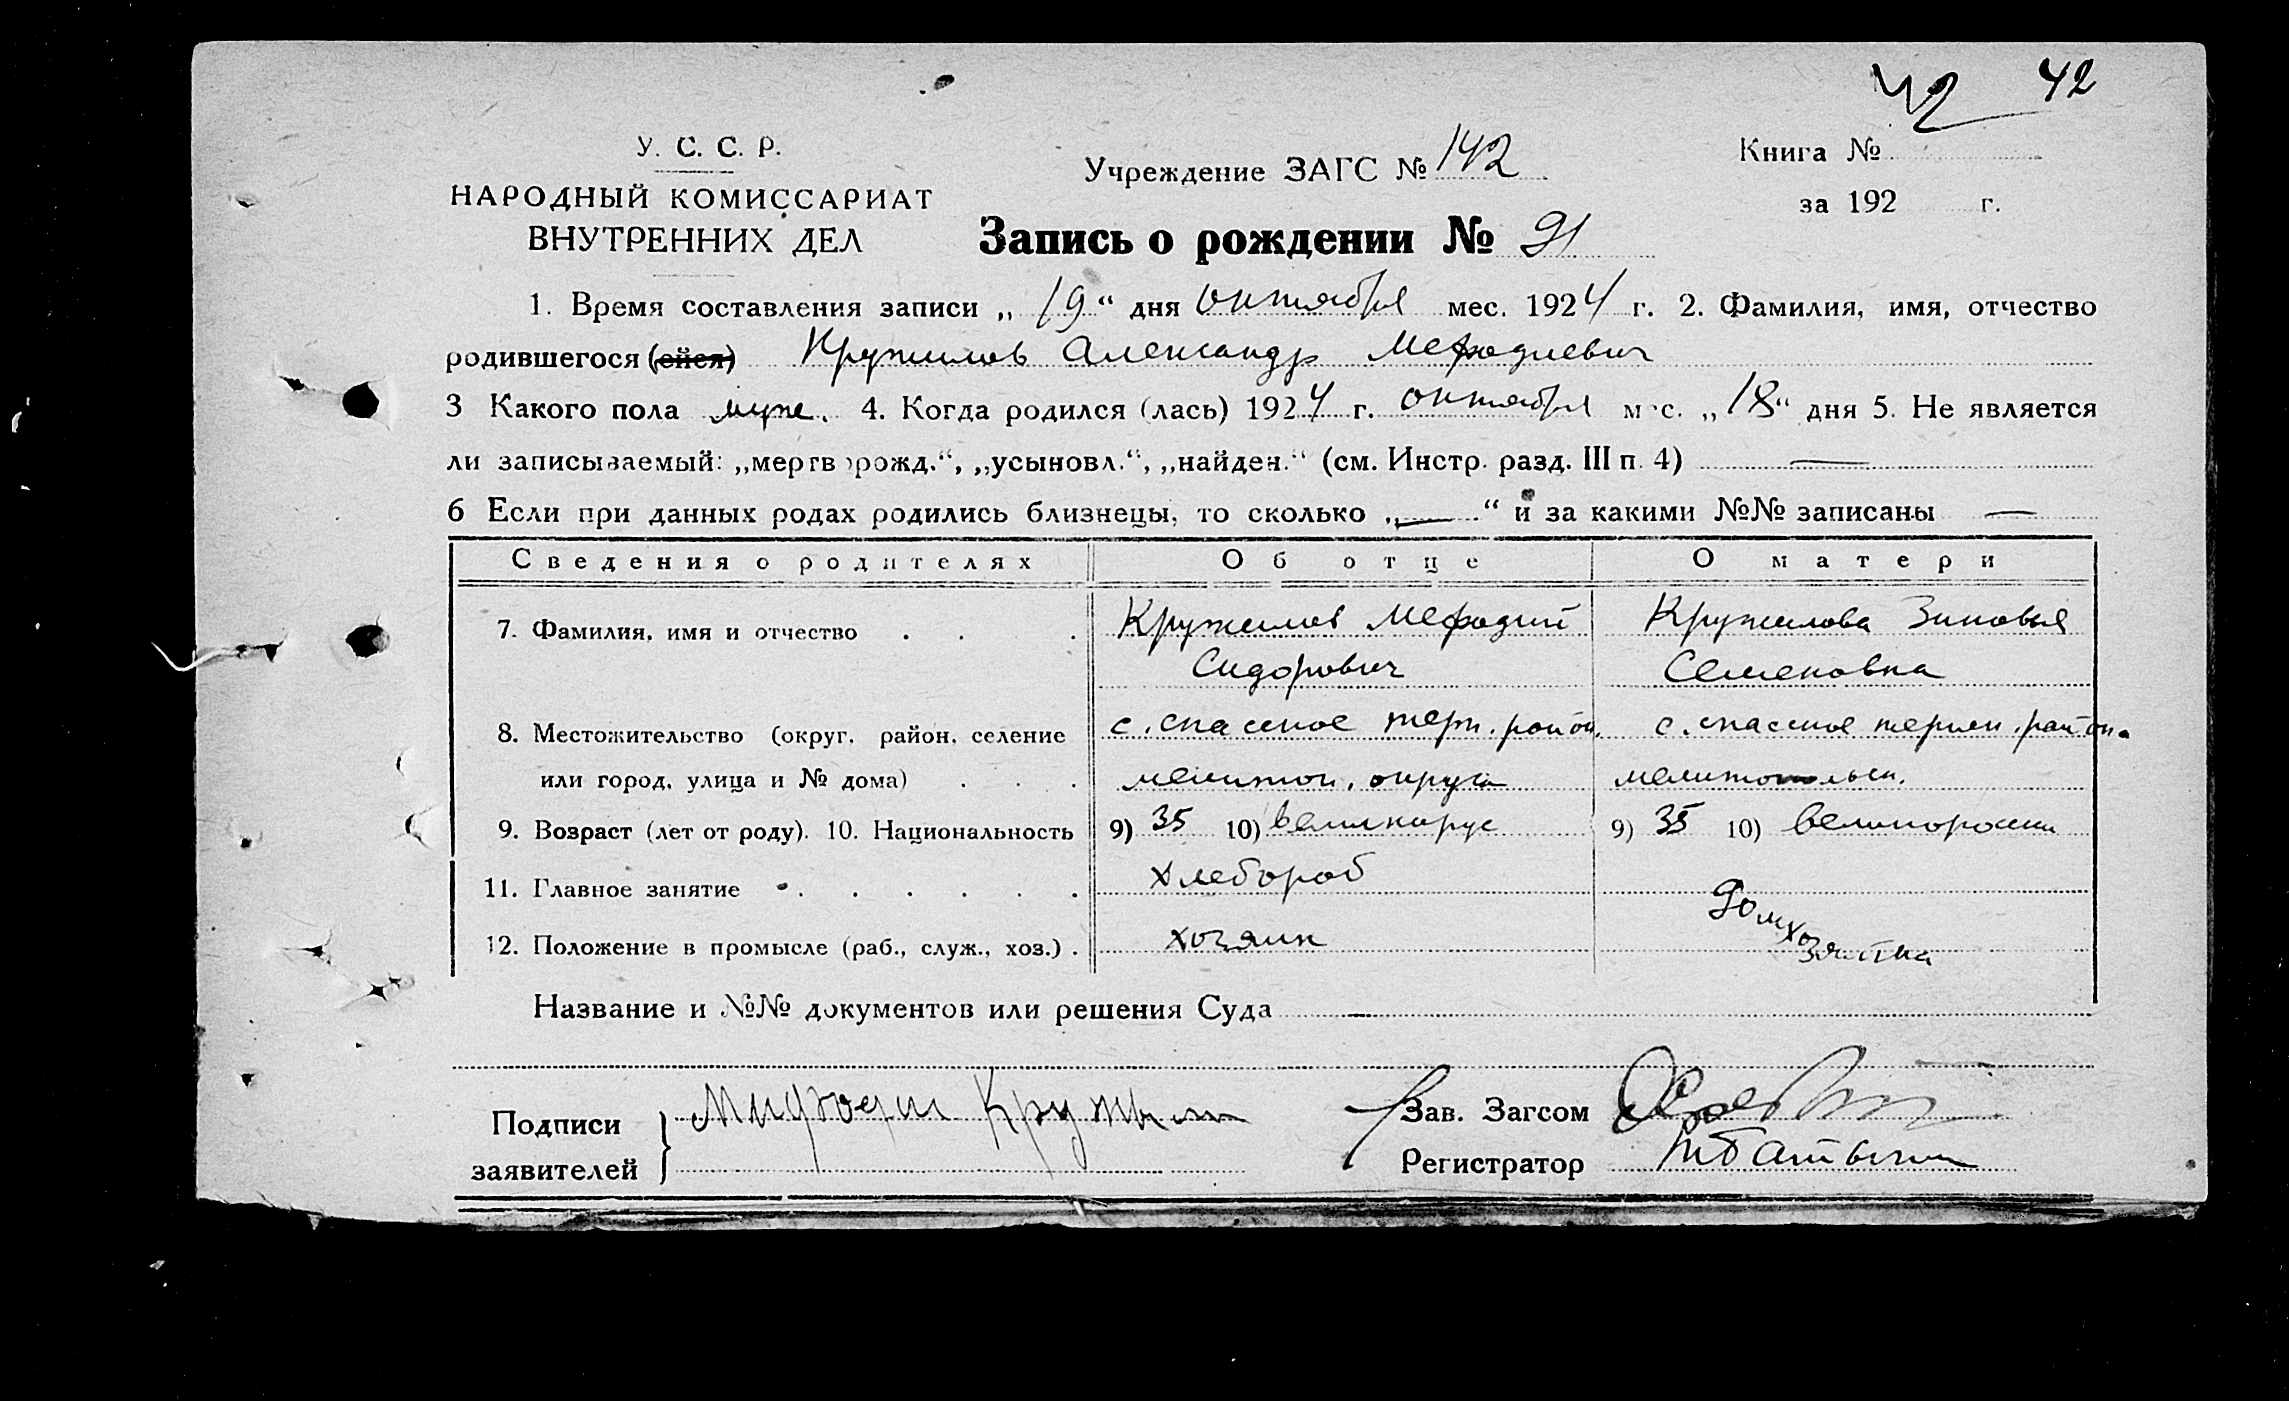 42 42
У. С. С. Р.
НАРОДНЫЙ КОМИССАРИАТ
ВНУТРЕННИХ ДЕЛ
Учреждение ЗАГС № 142
Книга №
за 192 г.
Запись о рождении № 91
1. Время составления записи „19“ дня октября мес. 1924 г. 2. Фамилия, имя, отчество
родившегося (ейся) Кружилов Александр Мефодиевич
3 Какого пола муж. 4. Когда родился (лась) 1924 г. октября мес. „18“ дня 5. Не является
ли записываемый: „мертворожд.“, „усыновл.“, „найден.“ (см. Инстр. разд. III п. 4) —
6 Если при данных родах родились близнецы, то сколько „—“ и за какими №№ записаны —
Сведения о родителях Об отце О матери
7. Фамилия, имя и отчество Кружилов Мефодий Кружилова Зиновья
Сидорович Семеновна
8. Местожительство (округ, район, селение с. спасское терп. район. с. спасское терпен. района
или город, улица и № дома) мелитоп. округа мелитопольск.
9. Возраст (лет от роду). 10. Национальность 9) 35 10) великорус 9) 35 10) великоросска
11. Главное занятие хлебороб
12. Положение в промысле (раб., служ., хоз.) хозяин домхозяйка
Название и №№ документов или решения Суда —
Подписи
заявителей
Зав. Загсом
Регистратор